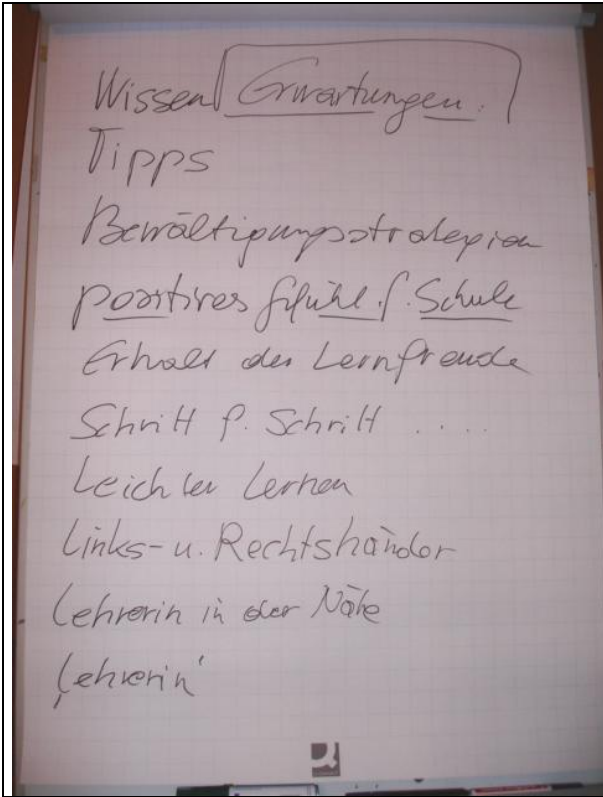 Wissen Erwartungen.
Tipps
Bewältigungsstrategien
positives Gfühl f. Schule
Erhalt der Lernfreude
Schritt f. Schritt ....
Leichter Lernen
Links- u. Rechtshänder
Lehrerin in der Nähe
'Lehrerin'